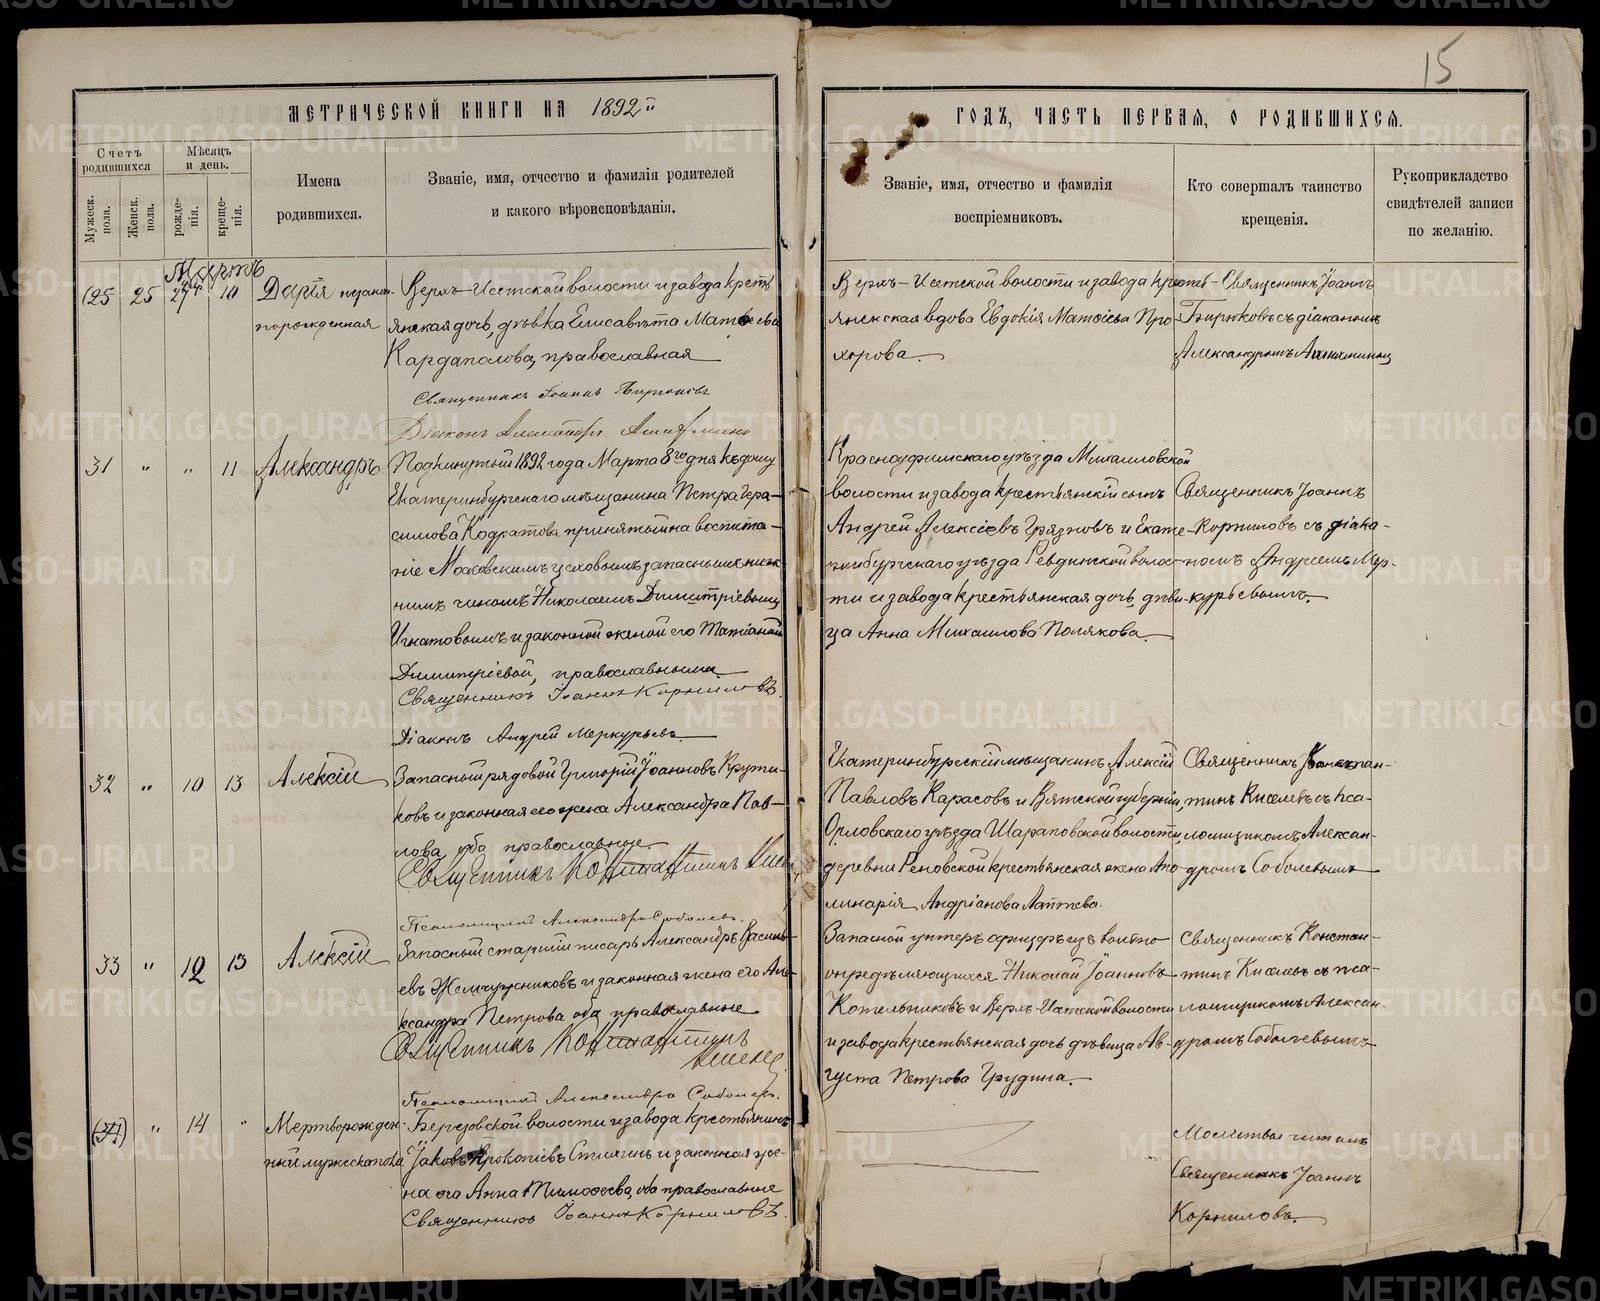 15
МЕТРИЧЕСКОЙ КНИГИ НА 1892й
ГОДЪ, ЧАСТЬ ПЕРВАЯ, О РОДИВШИХСЯ.
Счетъ родившихся
Мужеск. пола.
Женск. пола.
Мѣсяцъ и день.
рожденія.
крещенія.
Имена
родившихся.
Званіе, имя, отчество и фамилія родителей
и какого вѣроисповѣданія.
Званіе, имя, отчество и фамилія
воспріемниковъ.
Кто совершалъ таинство
крещенія.
Рукоприкладство
свидѣтелей записи
по желанію.
Мартъ
25 10
Дарія незакон-
норожденная
Верхъ-Исетской волости и завода крестъ-
янская дочь, дѣвка Елисавѣта Матѳіева
Кардаполова, православная
Священникъ Іоаннъ Бирюковъ
Діаконъ Александръ
Верхъ-Исетской волости и завода крестъ-
янская вдова Евдокія Матѳіева Про-
хорова.
Священникъ Іоаннъ
Бирюковъ съ діакономъ
Александромъ
31 " " 11
Александръ
Подкинутый 1892 года Марта 8го дня къ дому
Екатеринбургскаго мѣщанина Петра Гера-
симова Кодратова принятый на воспита-
ніе Московскимъ цеховымъ запаснымъ ниж-
нимъ чиномъ Николаемъ Димитріевымъ
Игнатовымъ и законной женой его Татіаной
Димитріевой, православными.
Священникъ Іоаннъ Корниловъ.
Діаконъ Андрей Меркурьевъ
Красноуфимскаго уѣзда Михаиловской
волости и завода крестьянскій сынъ
Андрей Алексіевъ Грязновъ и Екате-
ринбургскаго уѣзда Ревдинской волос-
ти и завода крестьянская дочь, дѣви-
ца Анна Михаилова Полякова.
Священникъ Іоаннъ
Корниловъ съ діако-
номъ Андреемъ Мер-
курьевымъ.
32 " 10 13
Алексій
Запасный рядовой Григорій Іоанновъ Крути-
ковъ и законная его жена Александра Пав-
лова, оба православные.
Священникъ Константинъ
Псаломщикъ Александръ Соболевъ.
Екатеринбургскій мѣщанинъ Алексій
Павловъ Карасовъ и Вятской губерніи,
Орловскаго уѣзда Шараповской волости,
деревни Реновской крестьянская жена Апо-
линарія Андріанова Лаптева.
Священникъ Констан-
тинъ Киселевъ съ пса-
ломщикомъ Алексан-
дромъ Соболевымъ
33 " 12 13
Алексій
Запасный старшій писарь Александръ Василь-
евъ Жемчужниковъ и законная жена его Але-
ксандра Петрова, оба православные
Священникъ Константинъ
Псаломщикъ Александръ Соболевъ.
Запасной унтеръ офицеръ изъ вольно-
опредѣляющихся Николай Іоанновъ
Котельниковъ и Верхъ-Исетской волости
и завода крестьянская дочь дѣвица Ав-
густа Петрова Грудина.
Священникъ Констан-
тинъ Киселевъ съ пса-
ломщикомъ Алексан-
дромъ Соболевымъ
(34) " 14 "
Мертворожден-
ный мужеска пола
Березовской волости и завода крестьянинъ
Іаковъ Прокопіевъ и законная же-
на его Анна Тимоѳеева, оба православные
Священникъ Іоаннъ Корниловъ.
Молитвы читалъ
Священникъ Іоаннъ
Корниловъ.
METRIKI.GASO-URAL.RU